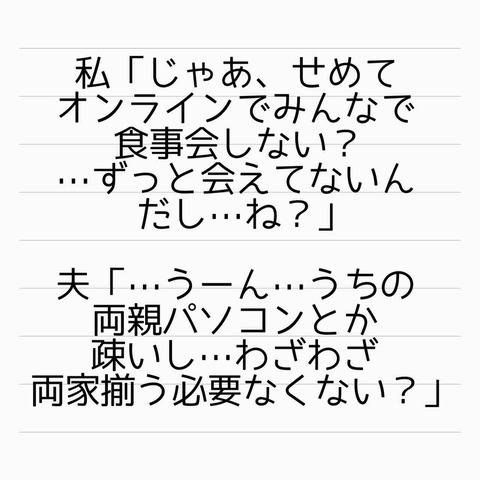 私「じゃあ、せめて
オンラインでみんなで
食事会しない？
…ずっと会えてないん
だし…ね？」
夫「…うーん…うちの
両親パソコンとか
疎いし…わざわざ
両家揃う必要なくない？」